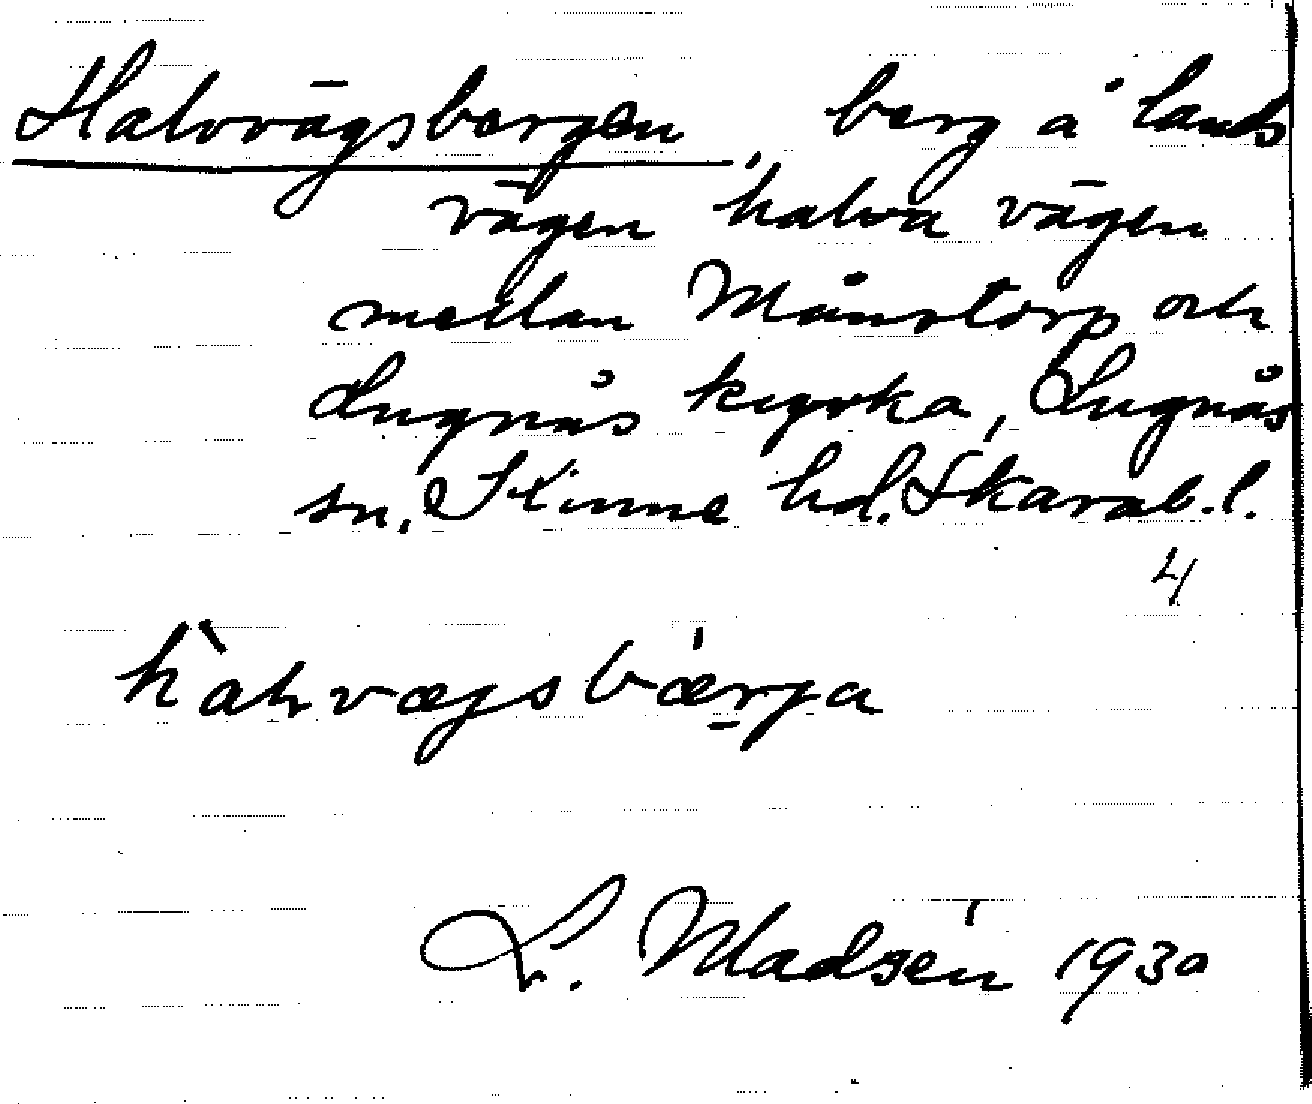 Halvvägsbergen, berg å lands
vägen halva vägen
mellan Månstorp och
Lugnås kyrka, Lugnås
sn. Kinne hd. Skarab. l.
4
hàlvægsbærja
L. Madsén 1930